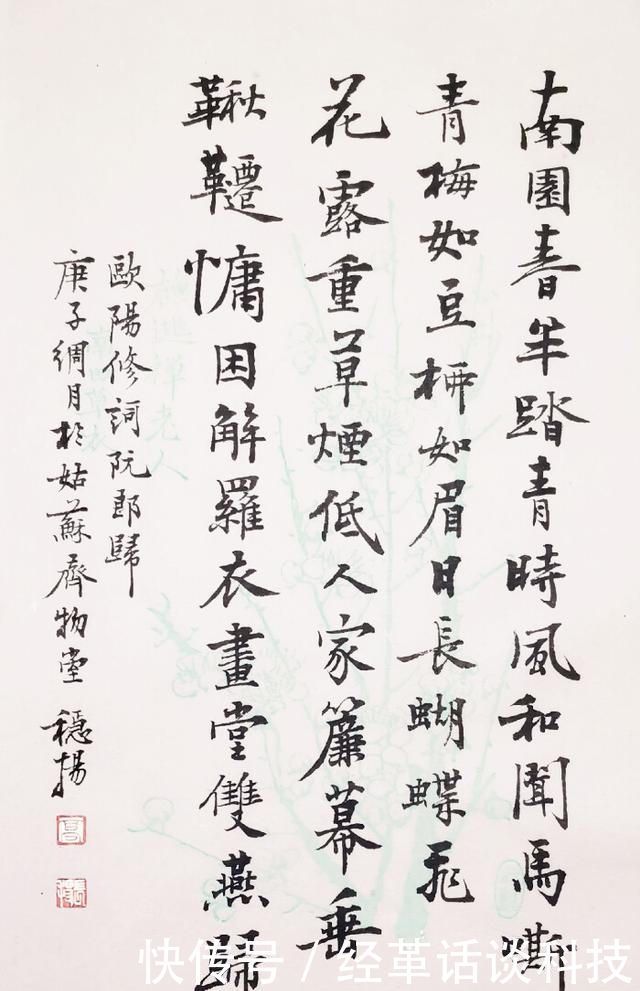 南園春半踏青時風和聞馬嘶
青梅如豆柳如眉日長蝴蝶飛
花露重草煙低人家簾幕垂
鞦韆慵困解羅衣畫堂雙燕歸
歐陽修詞阮郎歸
庚子綢月於姑蘇齊物堂 穩揚
快传号/经革话谈科技